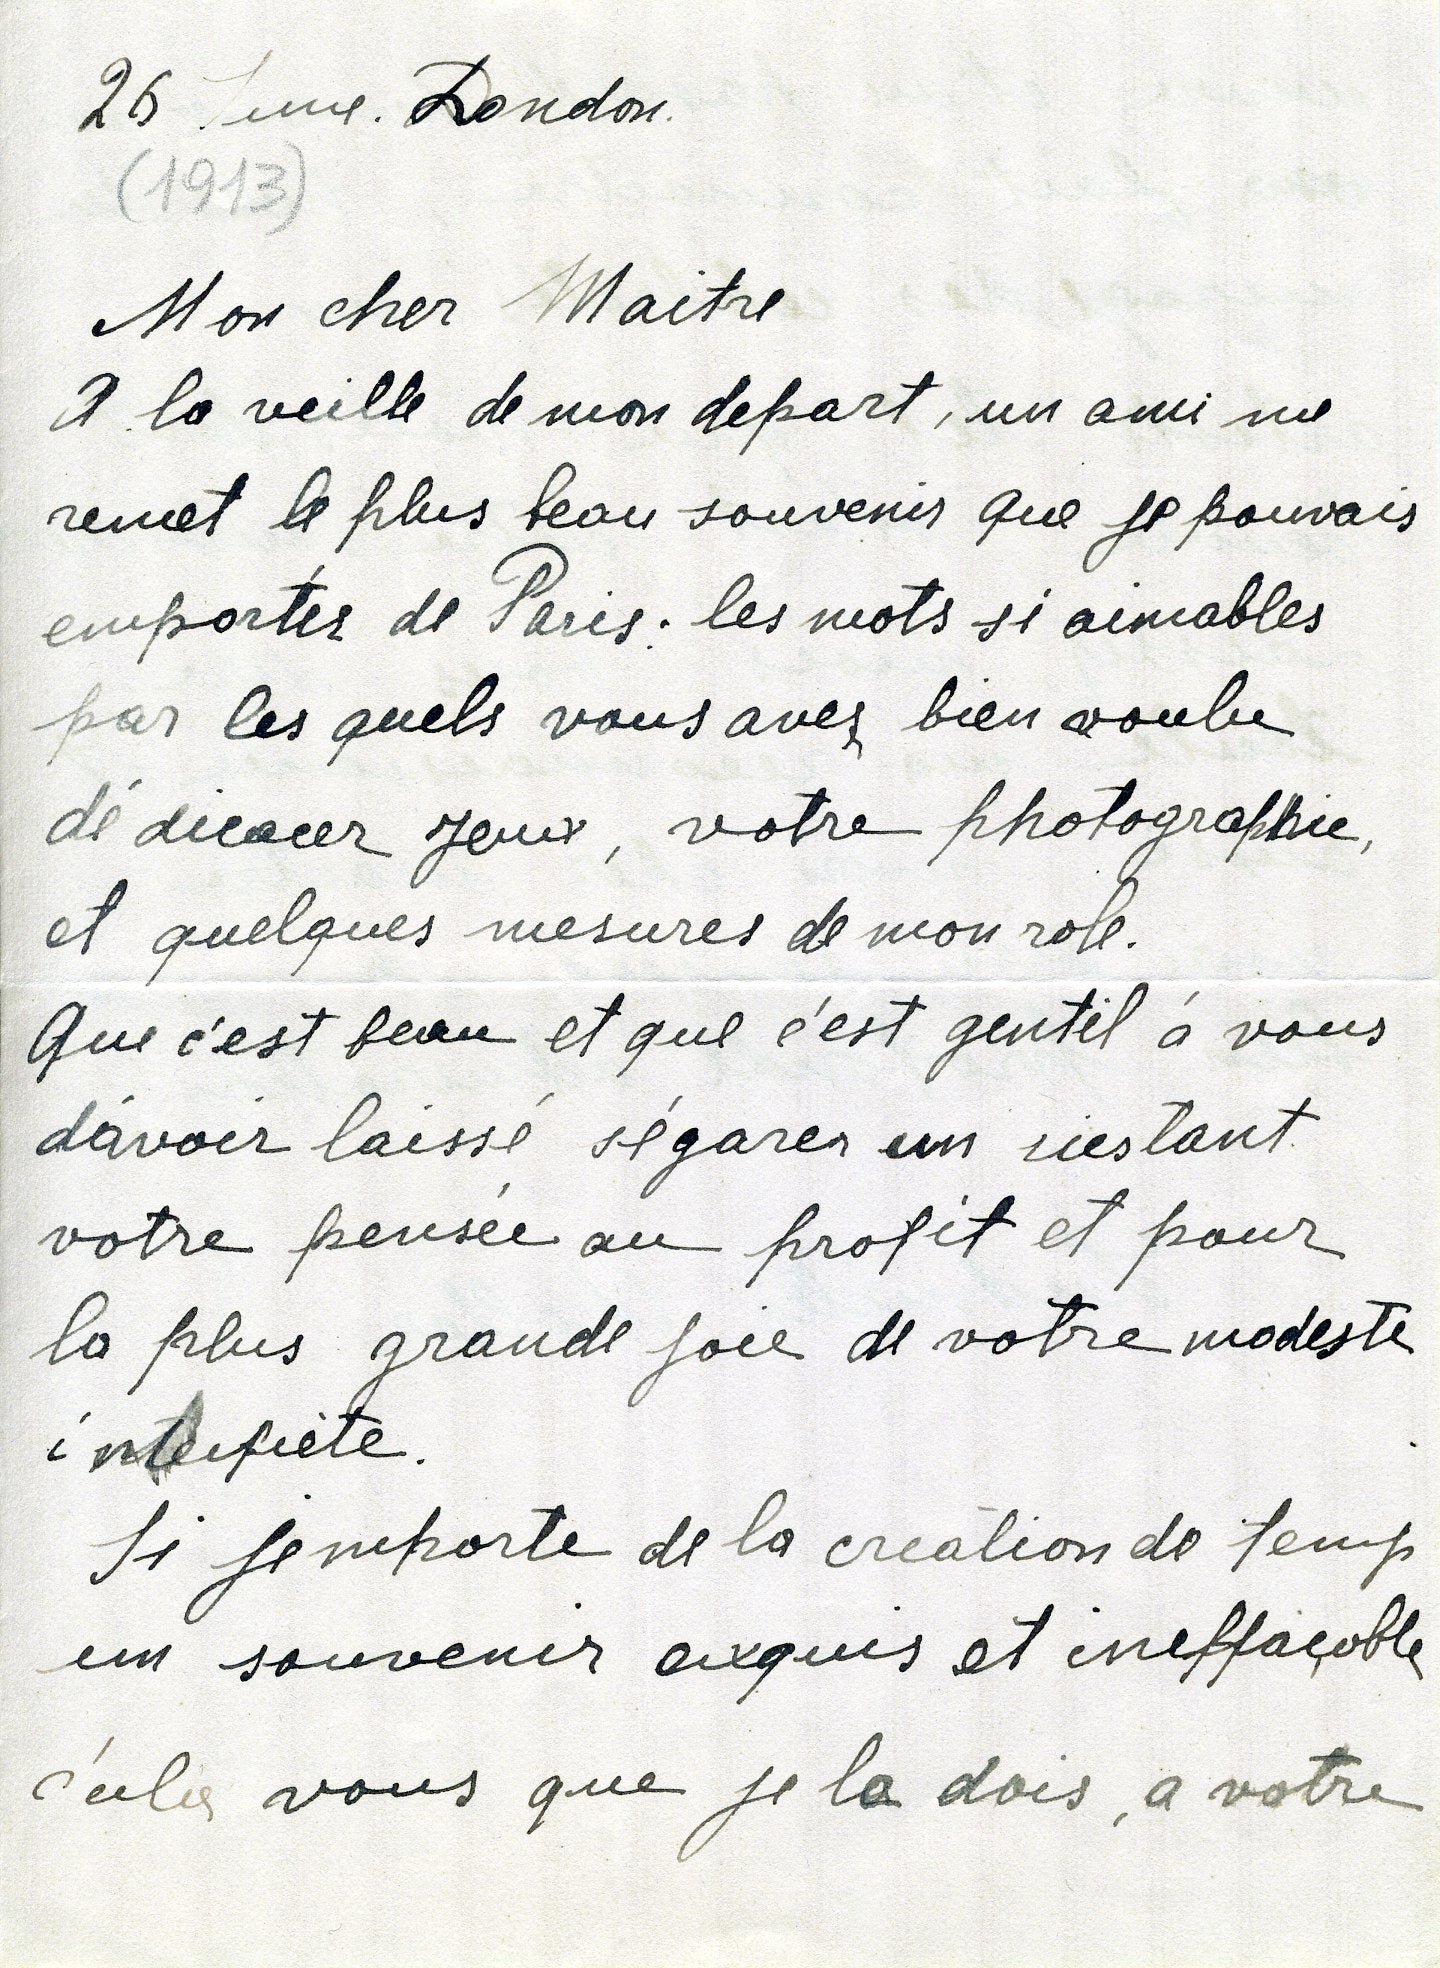 26 June. London.
(1913)
Mon cher Maitre
A la veille de mon depart, un ami me
remet le plus beau souvenir que je pouvais
emportér de Paris: les mots si aimables
par les quels vous avez bien voulu
dédicacer Jeux, votre photographie,
et quelques mesures de mon role.
Que c'est beau et que c'est gentil á vous
d'avoir laissé ségarer un instant
votre pensée au profit et pour
la plus grande joie de votre modeste
interprète.
Si jemporte de la creation de
un souvenir exquis et ineffaçable
vous que je la dois, a votre